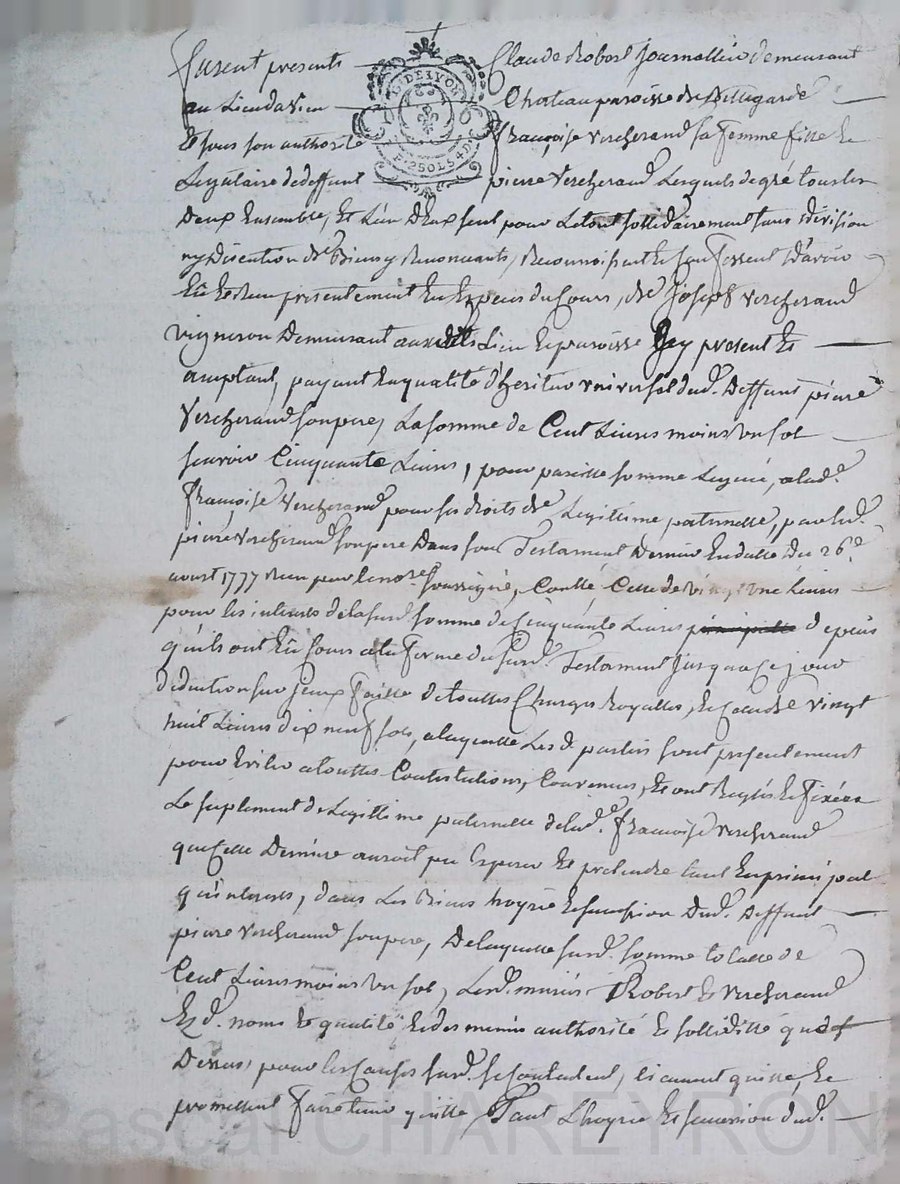 furent presents Claude Robert Journallier demeurant
au Lieu du Vieu Chateau paroisse de Bellegarde
G. DE LYON
P. 2 SOLS 4 D.
Et sous son authorité françoise Vercherand sa femme fille Et
Legataire de deffunt pierre Vercherand Lesquels de gré tous les
Deux Ensemble, Et L'un D'Eux seul pour Le tout sollidairement sans division
ny Discution de Biens y Renonceants, Reconnoissent Et Confessent D'avoir
Eû Et Reçu presentement En Especes du Cours, de Joseph Vercherand
vigneron Demeurant auxdits Lieu Et paroisse Icy present Et
acceptant, payant En qualité d'heritier universel dud. Deffunt pierre
Vercherand son pere, La somme de Cent Livres moins un sol
scavoir Cinquante Livres, pour pareille somme Leguée, a lad.e
françoise Vercherand pour ses droits de Legittime paternelle, par led.
pierre Vercherand son pere Dans son Testament Dernier En datte Du 26.e
aoust 1777 Reçu par le no.re soussigné, Controllé Celle de vingt une Livres
pour les interets de la sus d. somme de Cinquante Livres principalle depuis
qu'ils ont Eû Cours a la forme du susd. Testament Jusqu'a ce jour
deduction sur Iceux faitte de touttes Charges Royalles, Et Celle de vingt
huit Livres dix neuf sols, a laquelle Les d. parties sont presentement
pour Eviter a touttes Contestations, Convenus, Et ont Reglés Et fixées
Le suplement de Legittime paternelle de lad.e françoise Vercherand
que Cette Derniere auroit pu Esperer Et pretendre tant En principal
qu'interets, dans Les Biens hoyrie Et succession Dud. Deffunt
pierre Vercherand son pere, De laquelle susd. somme totalle de
Cent Livres moins un sol, Lesd. mariés Robert Et Vercherand
Ez d. noms Et qualité Et de meme authorité Et sollidité que
Dessus, pour les Causes susd. se Contentent, En quittent, Et
promettent faire tenir quitte Tant L'hoyrie Et succession dud.
Pascal CHAREYRON